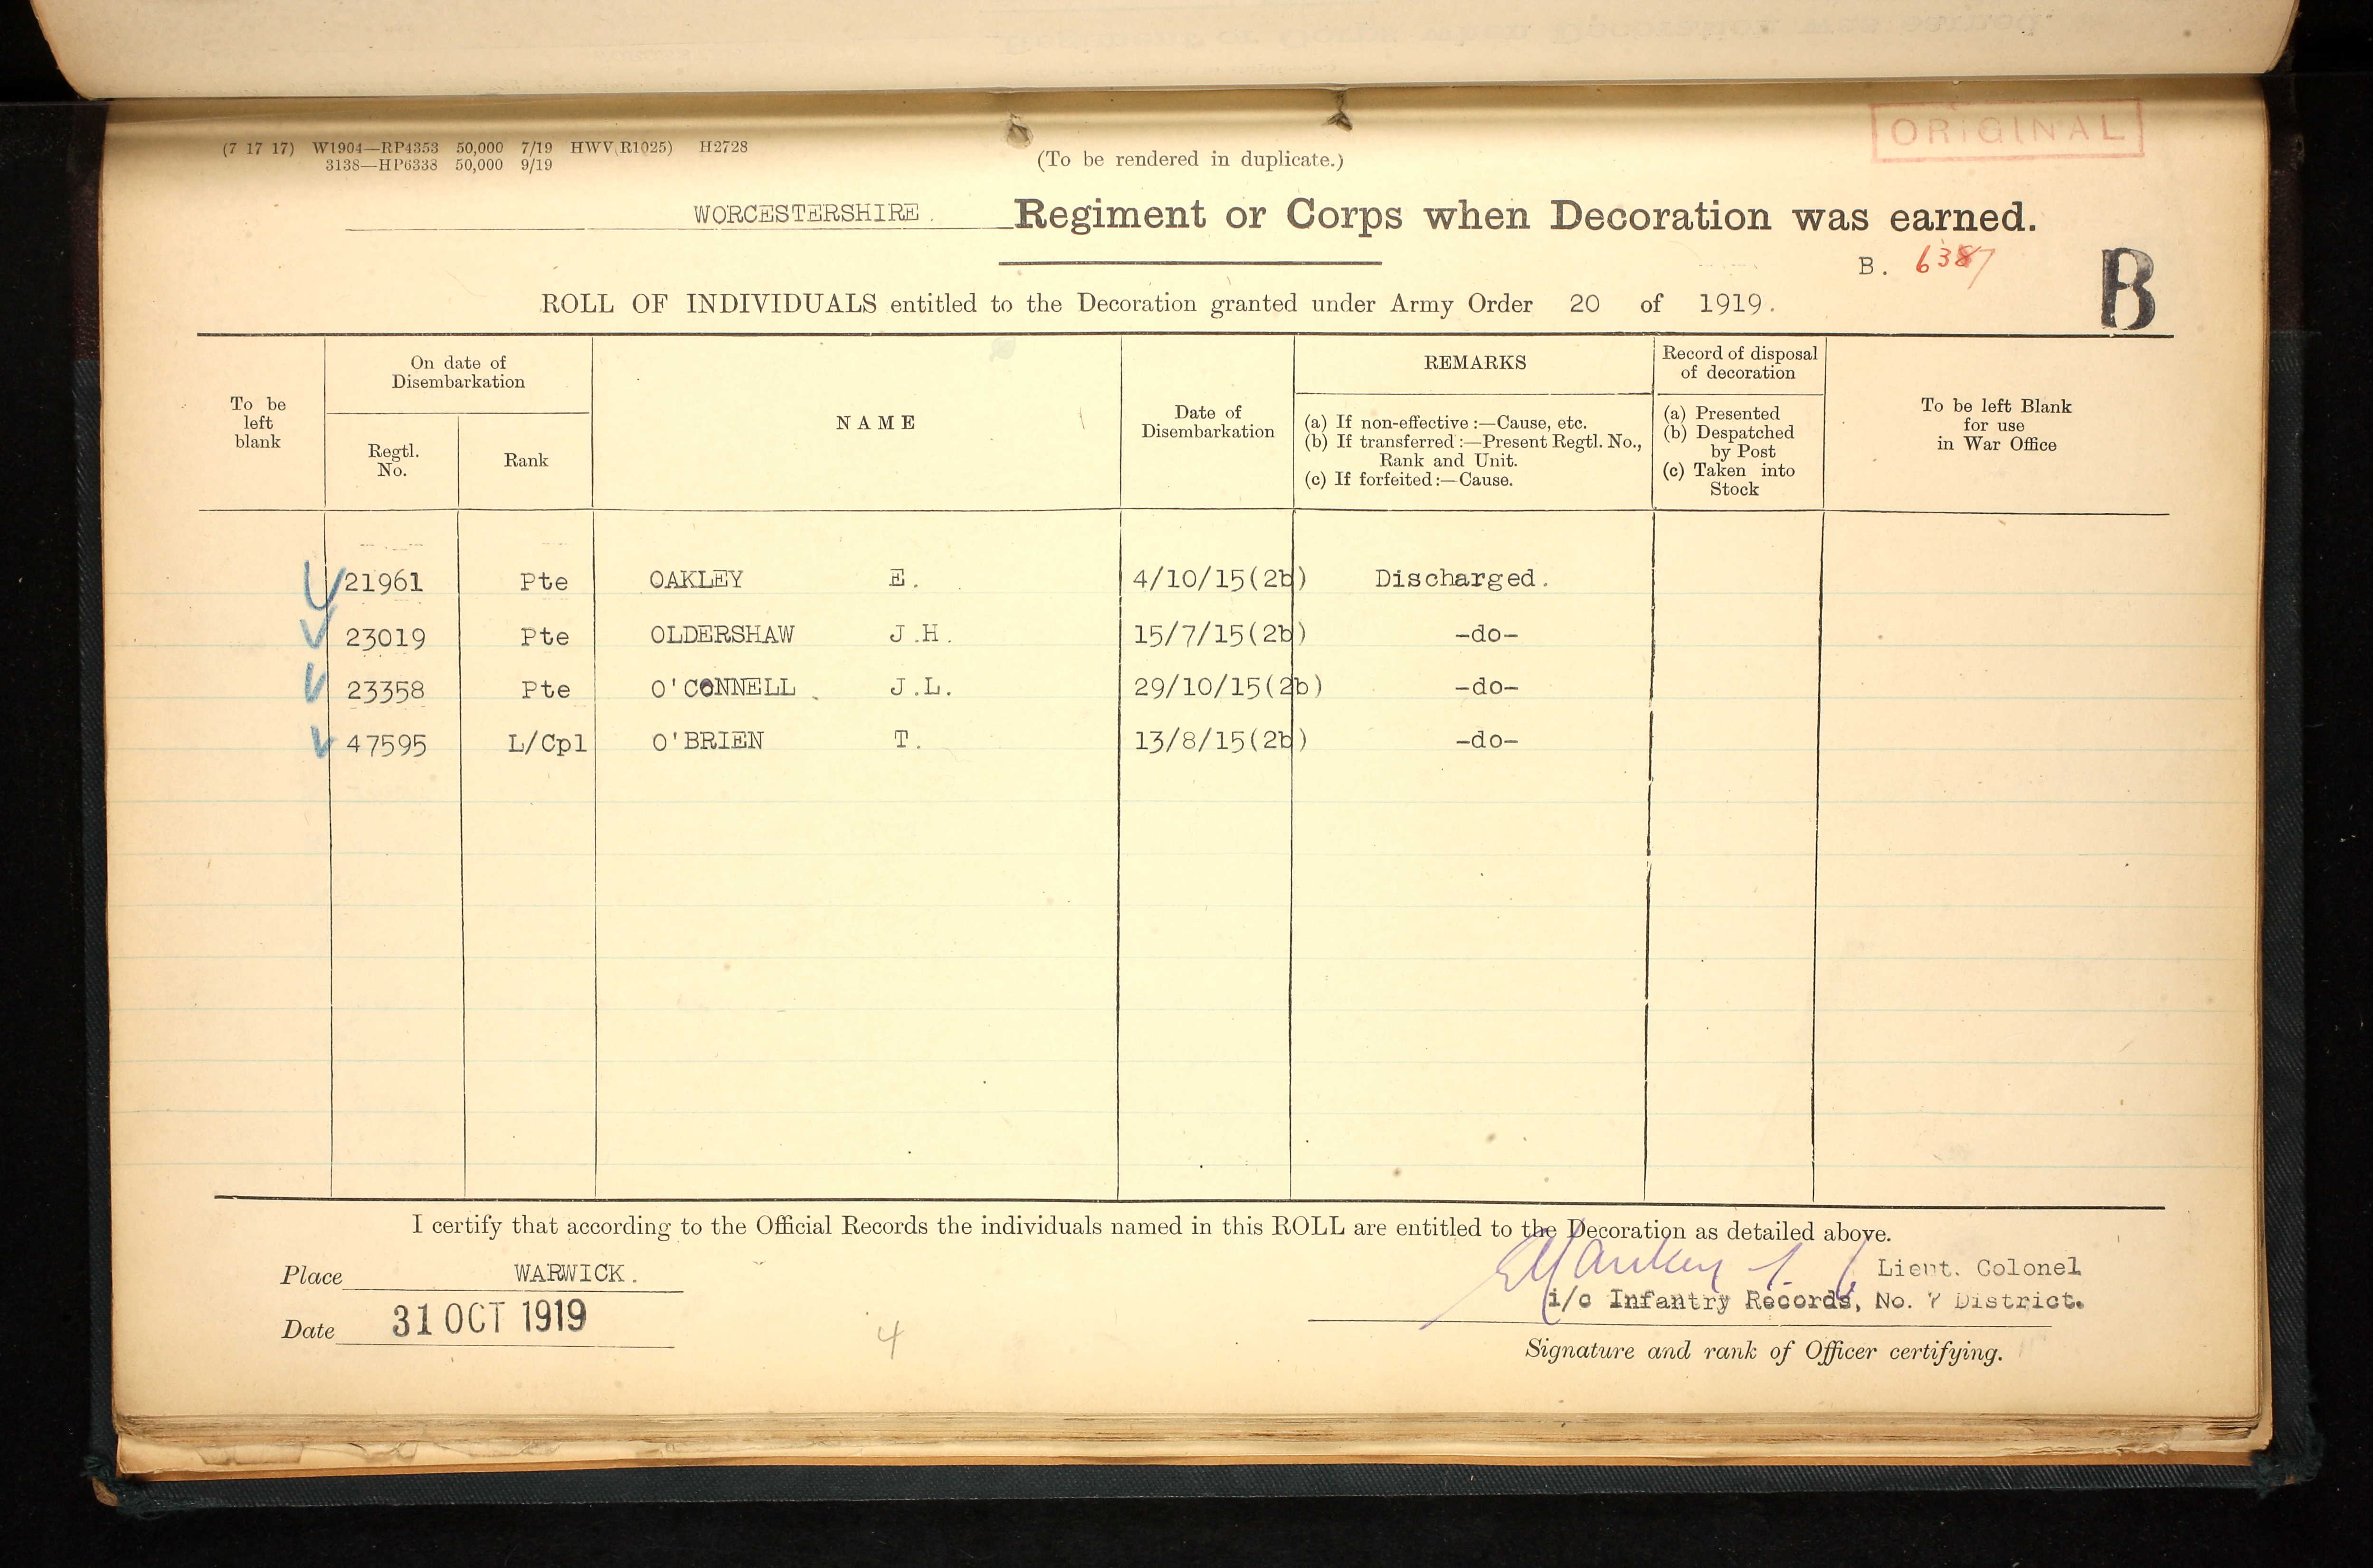 ORIGINAL
(7 17 17) W1904—RP4353 50,000 7/19 HWV(R1025) H2728
3138—HP6338 50,000 9/19
(To be rendered in duplicate.)
WORCESTERSHIRE. Regiment or Corps when Decoration was earned.
B. 6387
B
ROLL OF INDIVIDUALS entitled to the Decoration granted under Army Order 20 of 1919.
To be left blank
On date of Disembarkation
Regtl. No.
Rank
NAME
Date of Disembarkation
REMARKS
(a) If non-effective:—Cause, etc.
(b) If transferred:—Present Regtl. No., Rank and Unit.
(c) If forfeited:—Cause.
Record of disposal of decoration
(a) Presented
(b) Despatched by Post
(c) Taken into Stock
To be left Blank for use in War Office
21961 Pte OAKLEY E. 4/10/15(2b) Discharged.
23019 Pte OLDERSHAW J.H. 15/7/15(2b) -do-
23358 Pte O'CONNELL. J.L. 29/10/15(2b) -do-
47595 L/Cpl O'BRIEN T. 13/8/15(2b) -do-
I certify that according to the Official Records the individuals named in this ROLL are entitled to the Decoration as detailed above.
Place WARWICK.
Lieut. Colonel
i/c Infantry Records, No. 7 District.
Date 31 OCT 1919
4
Signature and rank of Officer certifying.